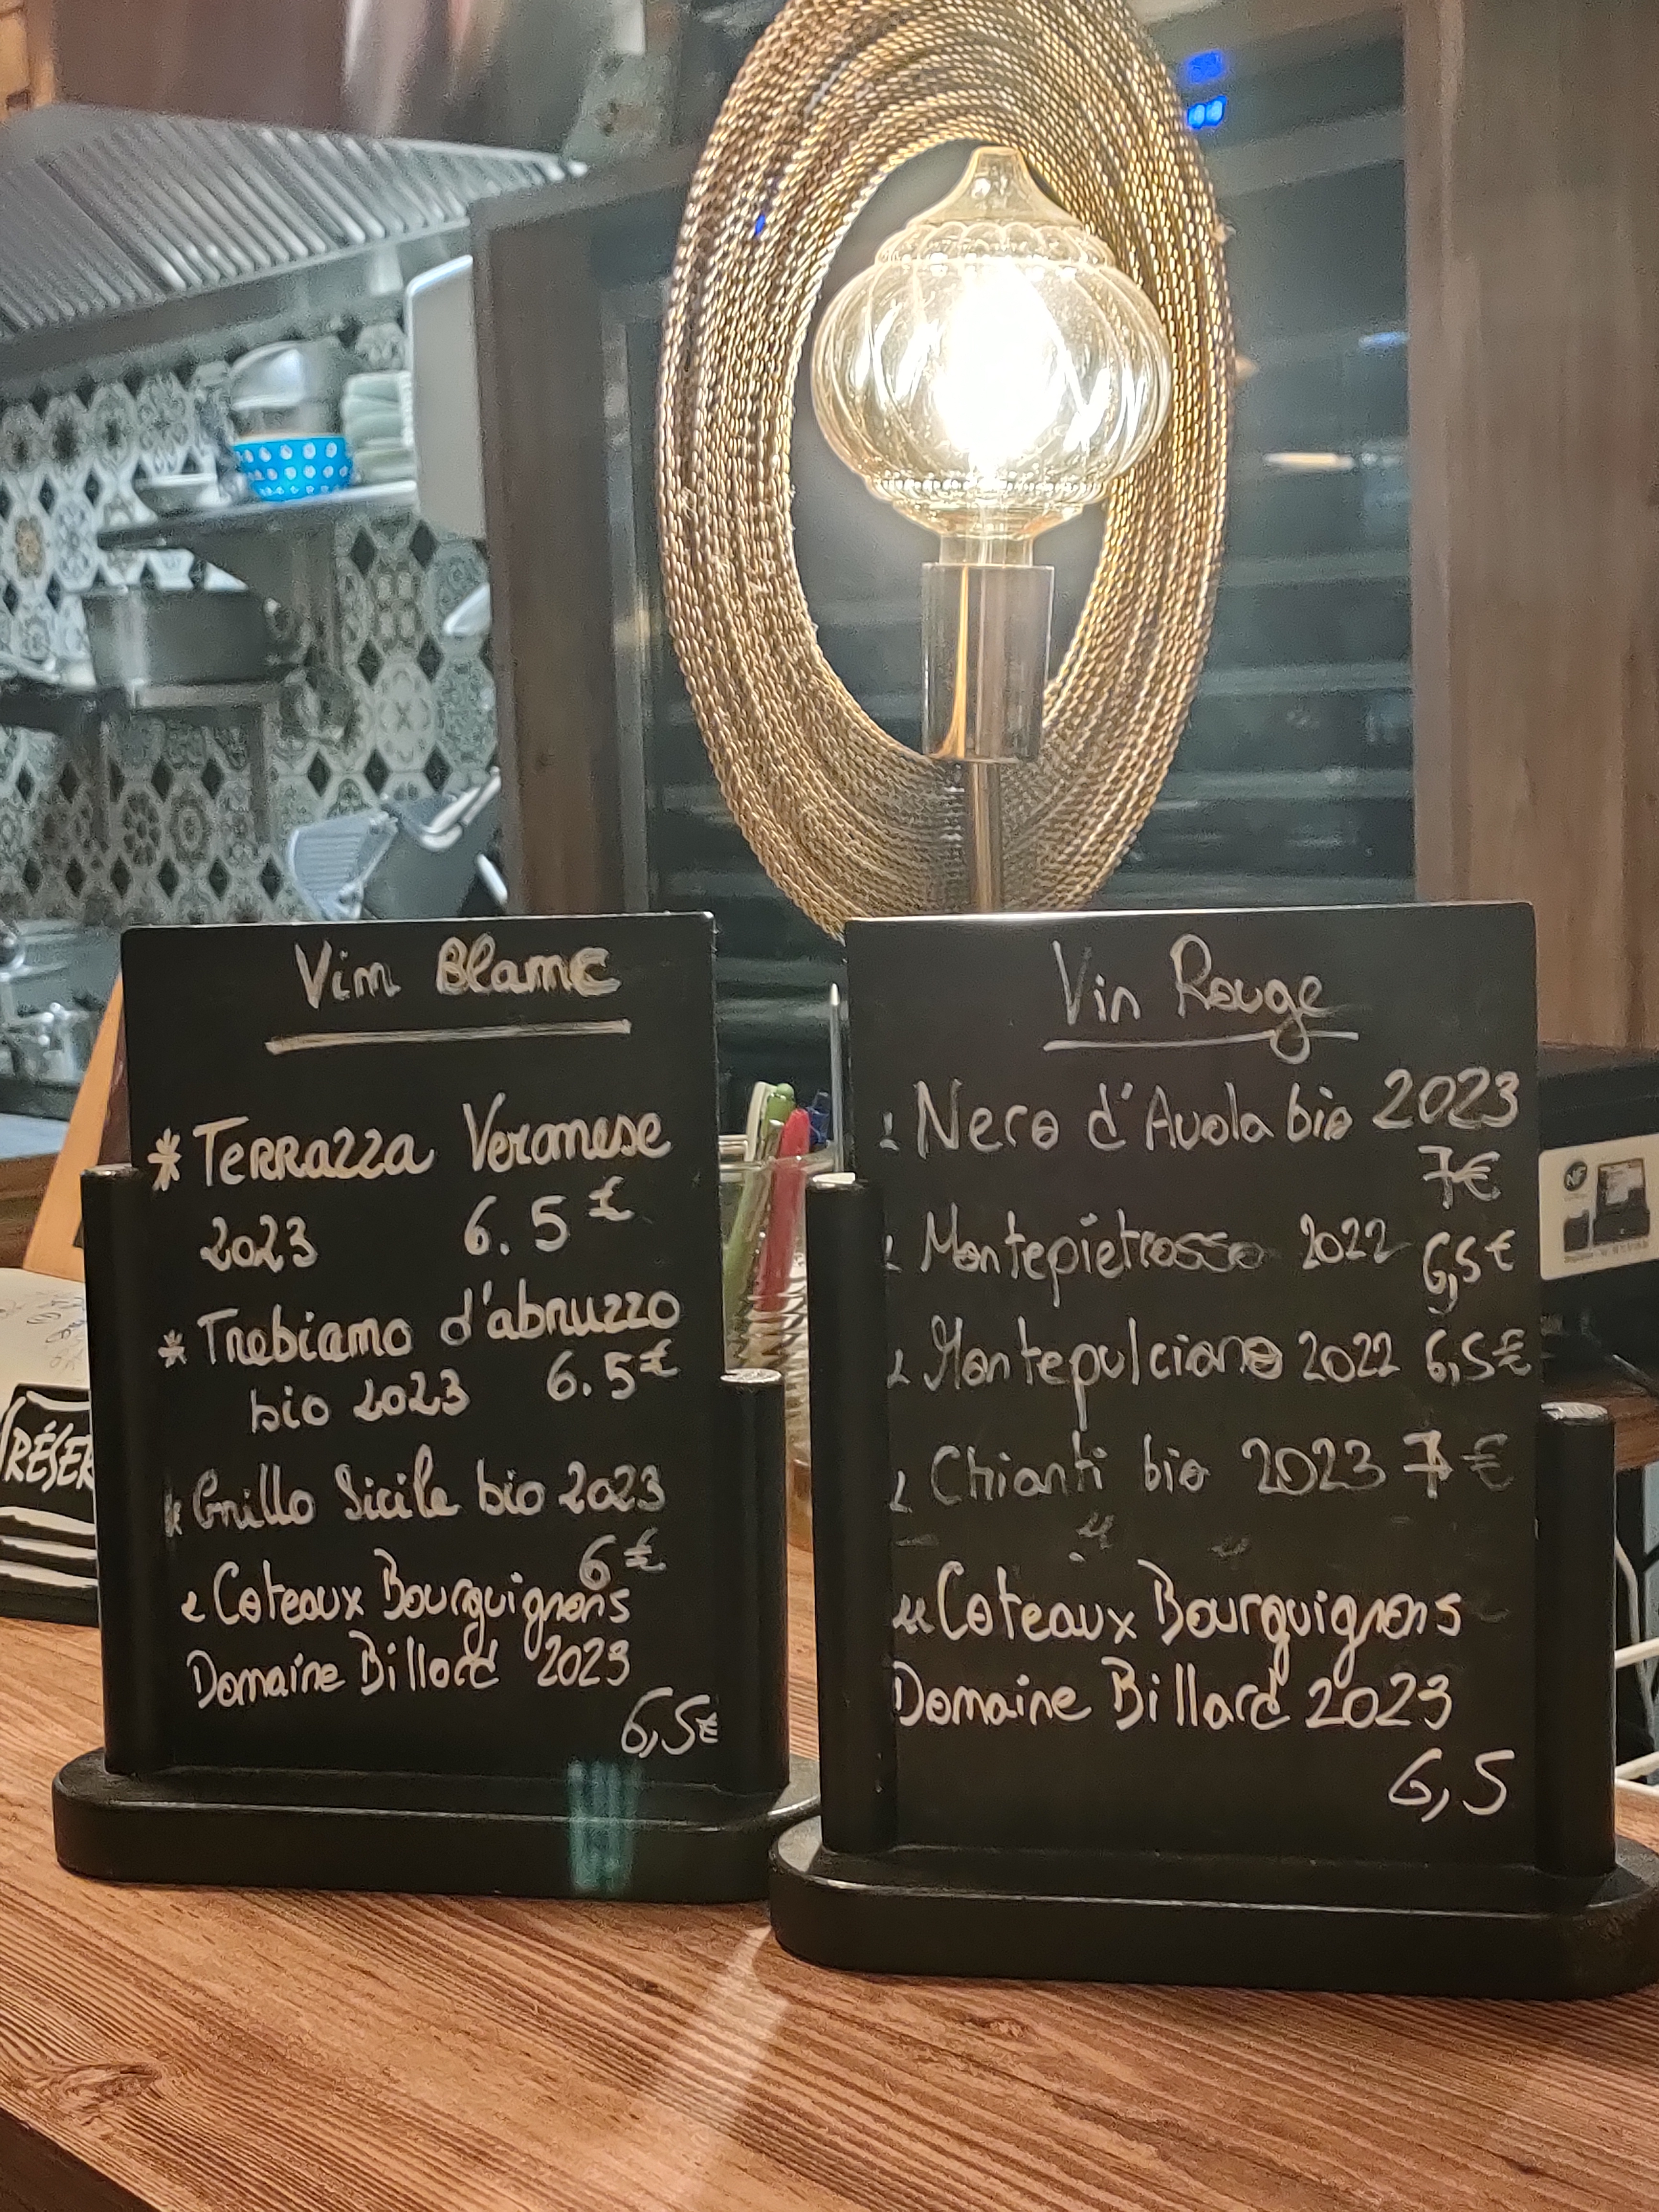 Vin Blanc
* Terrazza Veronese
2023 6.5 €
* Trebiano d'abruzzo
bio 2023 6.5 €
* Grillo Sicile bio 2023
6 €
Coteaux Bourguignons
Domaine Billard 2023
6,5 €
Vin Rouge
Nero d'Avola bio 2023
7€
Montepietrosso 2022 6,5 €
Montepulciano 2022 6,5 €
Chianti bio 2023 7 €
Coteaux Bourguignons
Domaine Billard 2023
6,5
RÉSER
NF